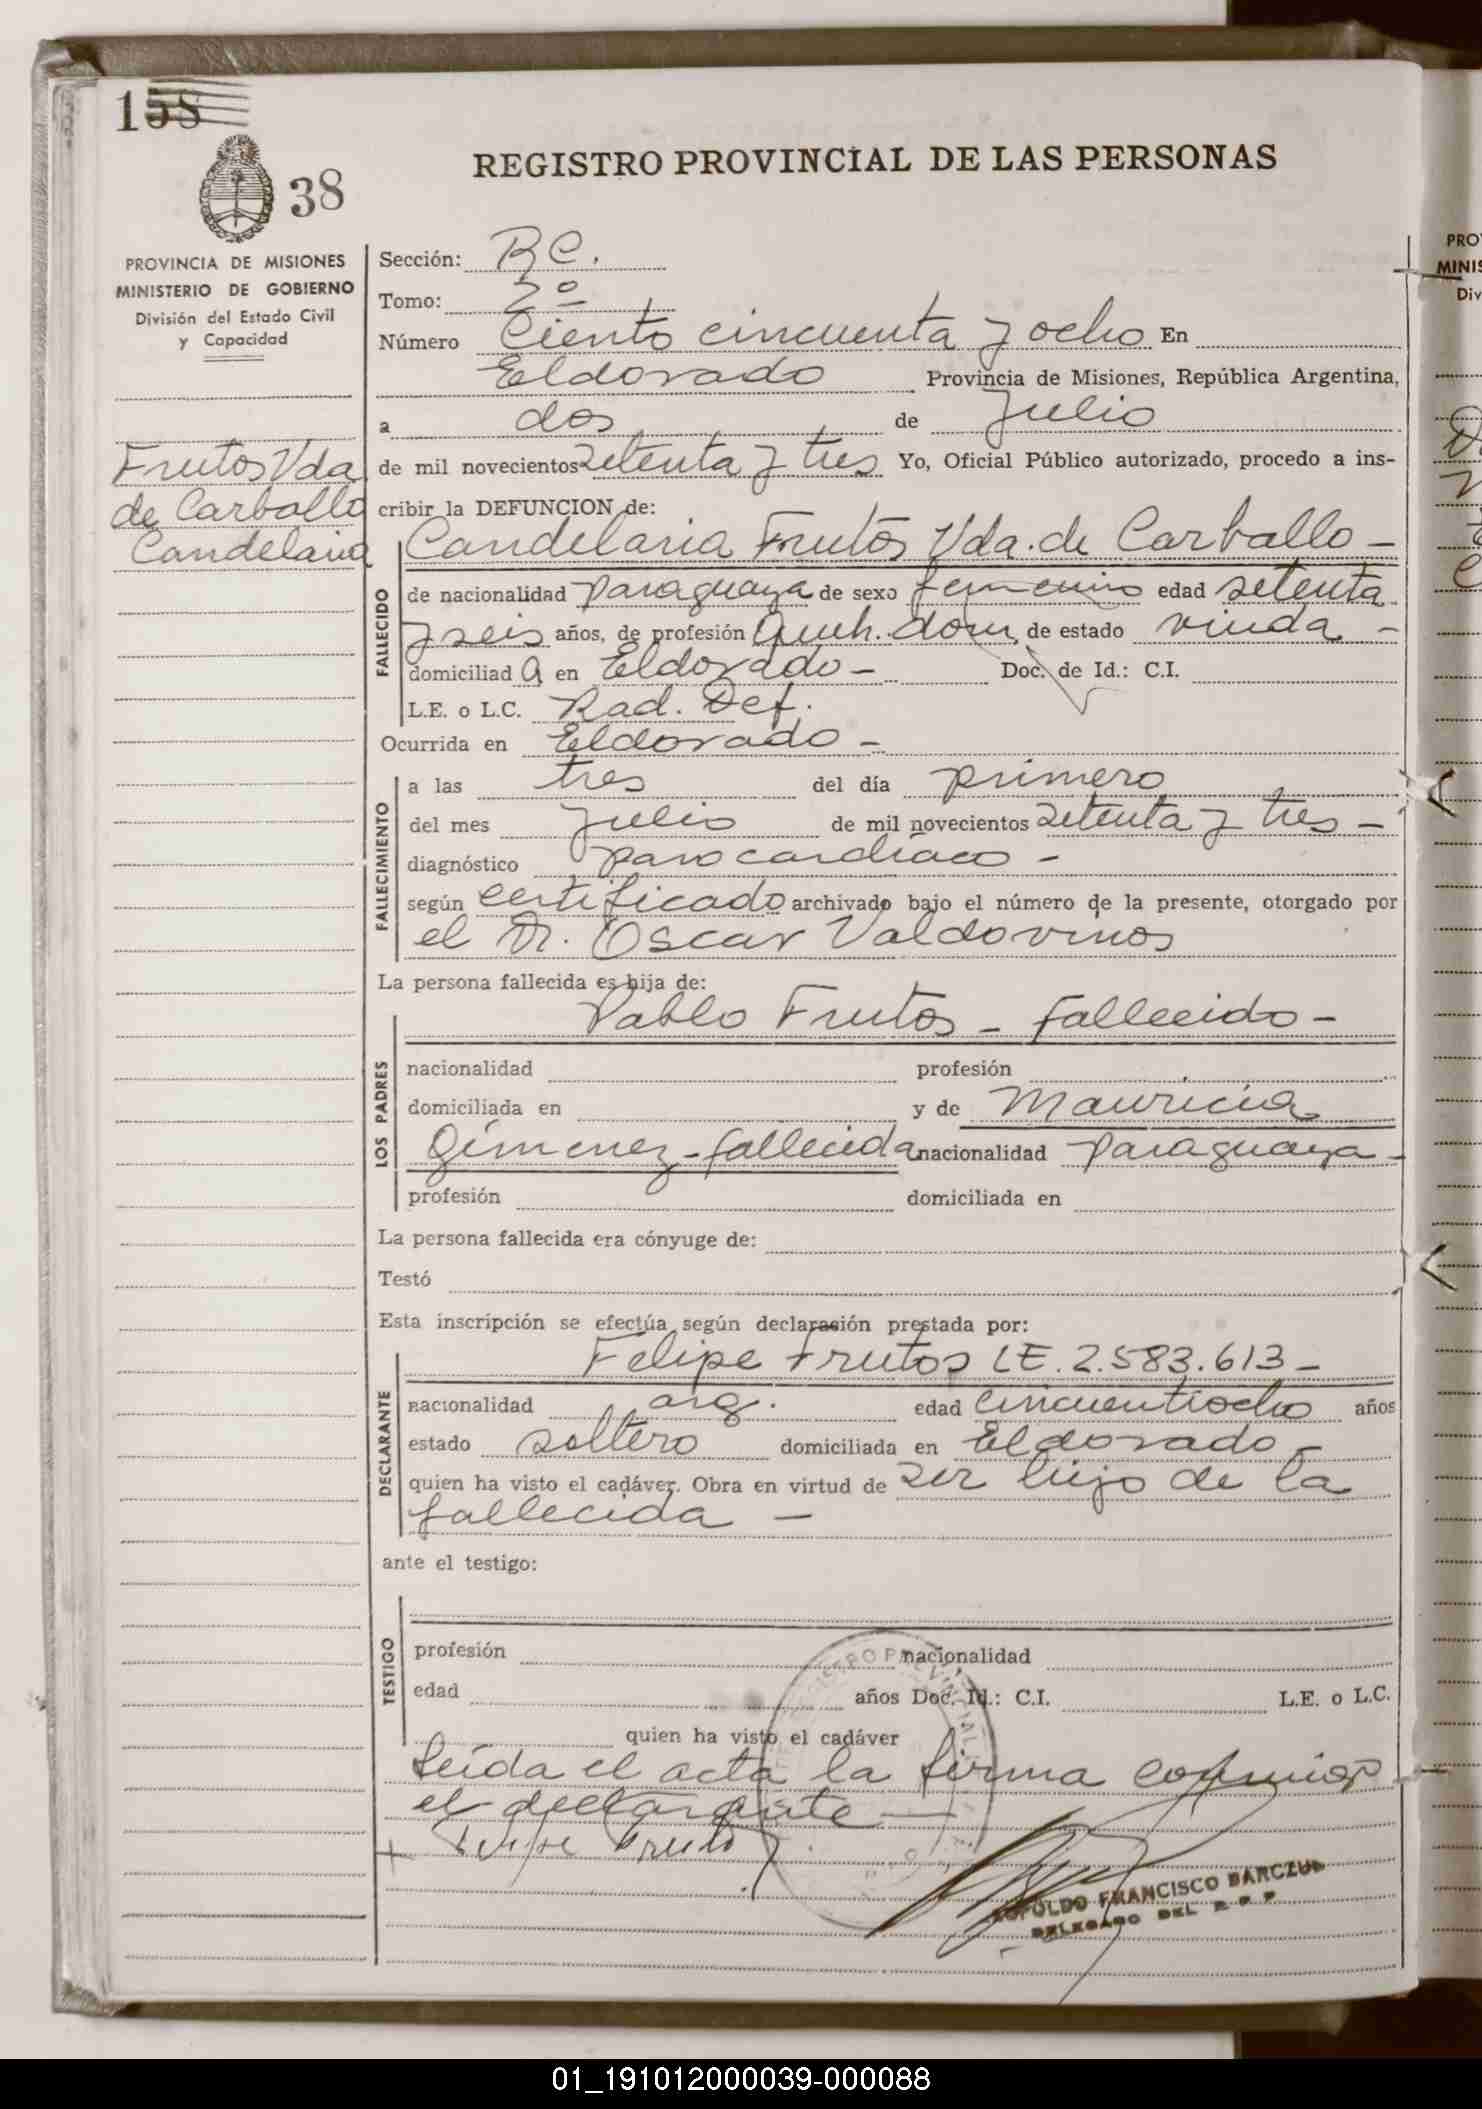 158
38
REGISTRO PROVINCIAL DE LAS PERSONAS
PROVINCIA DE MISIONES
MINISTERIO DE GOBIERNO
División del Estado Civil
y Capacidad
Frutos Vda
de Carballo
Candelaria
Sección: R C.
Tomo: 2º
Número Ciento cincuenta y ocho En
Eldorado Provincia de Misiones, República Argentina,
a dos de Julio
de mil novecientos setenta y tres Yo, Oficial Público autorizado, procedo a ins-
cribir la DEFUNCION de:
FALLECIDO
Candelaria Frutos Vda. de Carballo -
de nacionalidad paraguaya de sexo femenino edad setenta
y seis años, de profesión Queh. dom. de estado viuda -
domiciliad a en Eldorado - Doc. de Id.: C.I.
L.E. o L.C. Rad. Def.
Ocurrida en Eldorado -
FALLECIMIENTO
a las tres del día primero
del mes Julio de mil novecientos setenta y tres -
diagnóstico paro cardíaco -
según certificado archivado bajo el número de la presente, otorgado por
el Dr. Oscar Valdovinos
La persona fallecida es hija de:
LOS PADRES
Pablo Frutos - fallecido -
nacionalidad profesión
domiciliada en y de Mauricia
Gimenez - fallecida nacionalidad paraguaya -
profesión domiciliada en
La persona fallecida era cónyuge de:
Testó
Esta inscripción se efectúa según declaración prestada por:
DECLARANTE
Felipe Frutos LE. 2.583.613 -
nacionalidad arg. edad cincuentiocho años
estado soltero domiciliada en Eldorado -
quien ha visto el cadáver. Obra en virtud de ser hijo de la
fallecida -
ante el testigo:
TESTIGO
profesión nacionalidad
edad años Doc. Id.: C.I. L.E. o L.C.
quien ha visto el cadáver
Leída el acta la firma conmigo
el declarante
Felipe Frutos
REGISTRO PROVINCIAL
LEOPOLDO FRANCISCO BARCZUK
DELEGADO DEL R P P
PRO
MINIS
Div
01_191012000039-000088